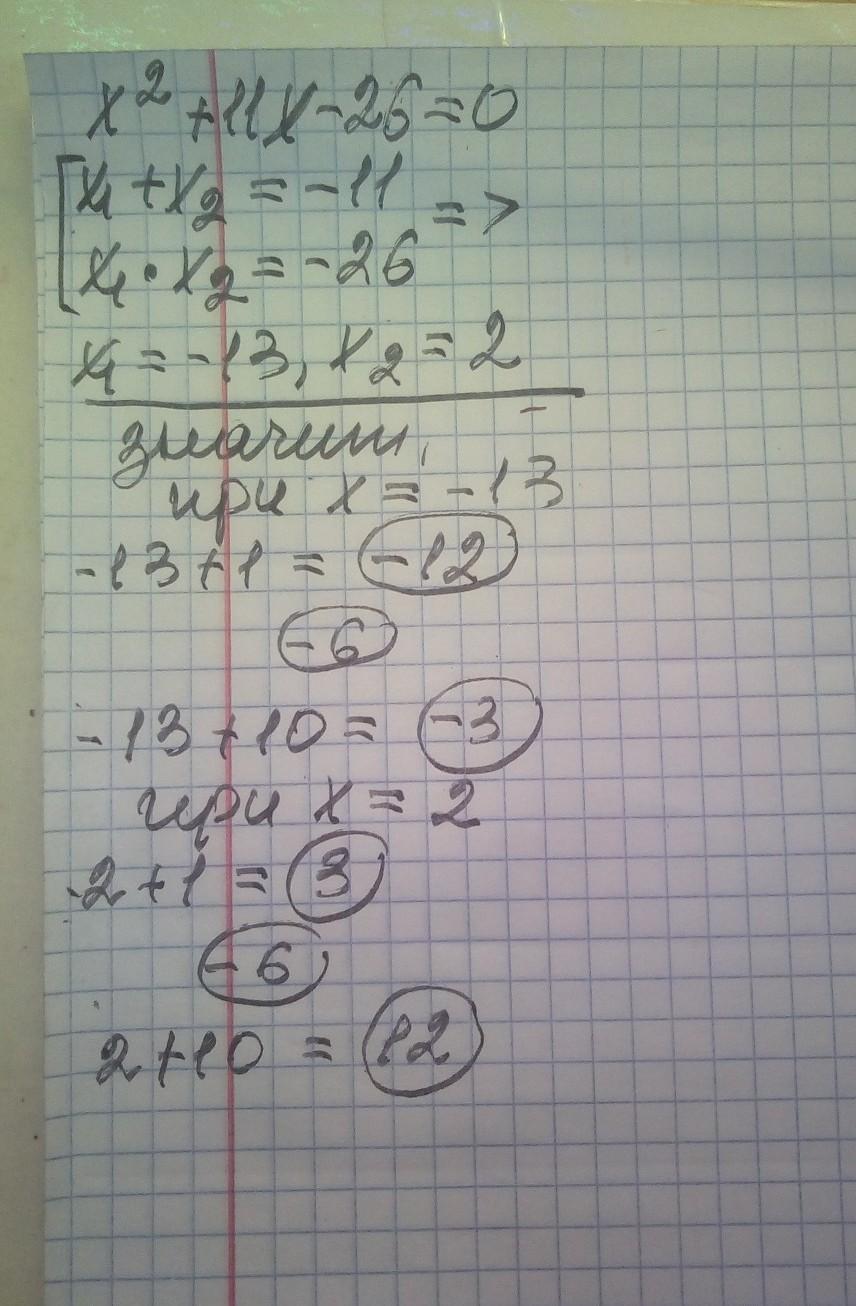 x² + 11x - 26 = 0
x₁ + x₂ = -11
=>
x₁ • x₂ = -26
x₁ = -13, x₂ = 2
значит,
при x = -13
-13 + 1 = -12
-6
-13 + 10 = -3
при x = 2
2 + 1 = 3
-6
2 + 10 = 12